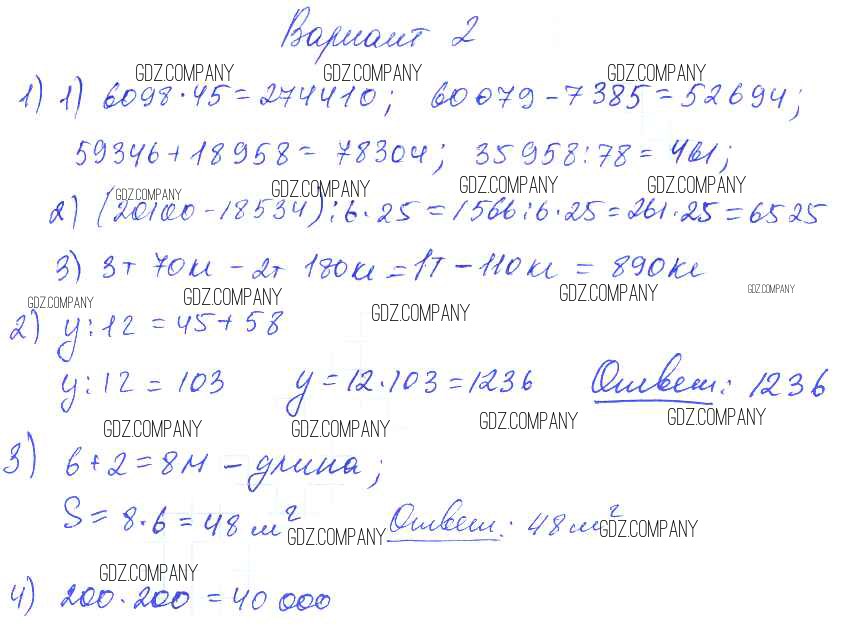 Вариант 2
GDZ.COMPANY GDZ.COMPANY GDZ.COMPANY
1) 1) 6098·45=274410; 60079-7385=52694;
59346+18958=78304; 35958:78=461;
GDZ.COMPANY GDZ.COMPANY GDZ.COMPANY GDZ.COMPANY
2) (20100-18534):6·25=1566:6·25=261·25=6525
3) 3т 70кг - 2т 180кг=1т-110кг=890кг
GDZ.COMPANY GDZ.COMPANY GDZ.COMPANY GDZ.COMPANY GDZ.COMPANY
2) y:12=45+58
y:12=103 y=12·103=1236 Ответ: 1236
GDZ.COMPANY GDZ.COMPANY GDZ.COMPANY GDZ.COMPANY
3) 6+2=8м - длина;
S=8·6=48м² Ответ: 48м²
GDZ.COMPANY GDZ.COMPANY
GDZ.COMPANY
4) 200·200=40 000